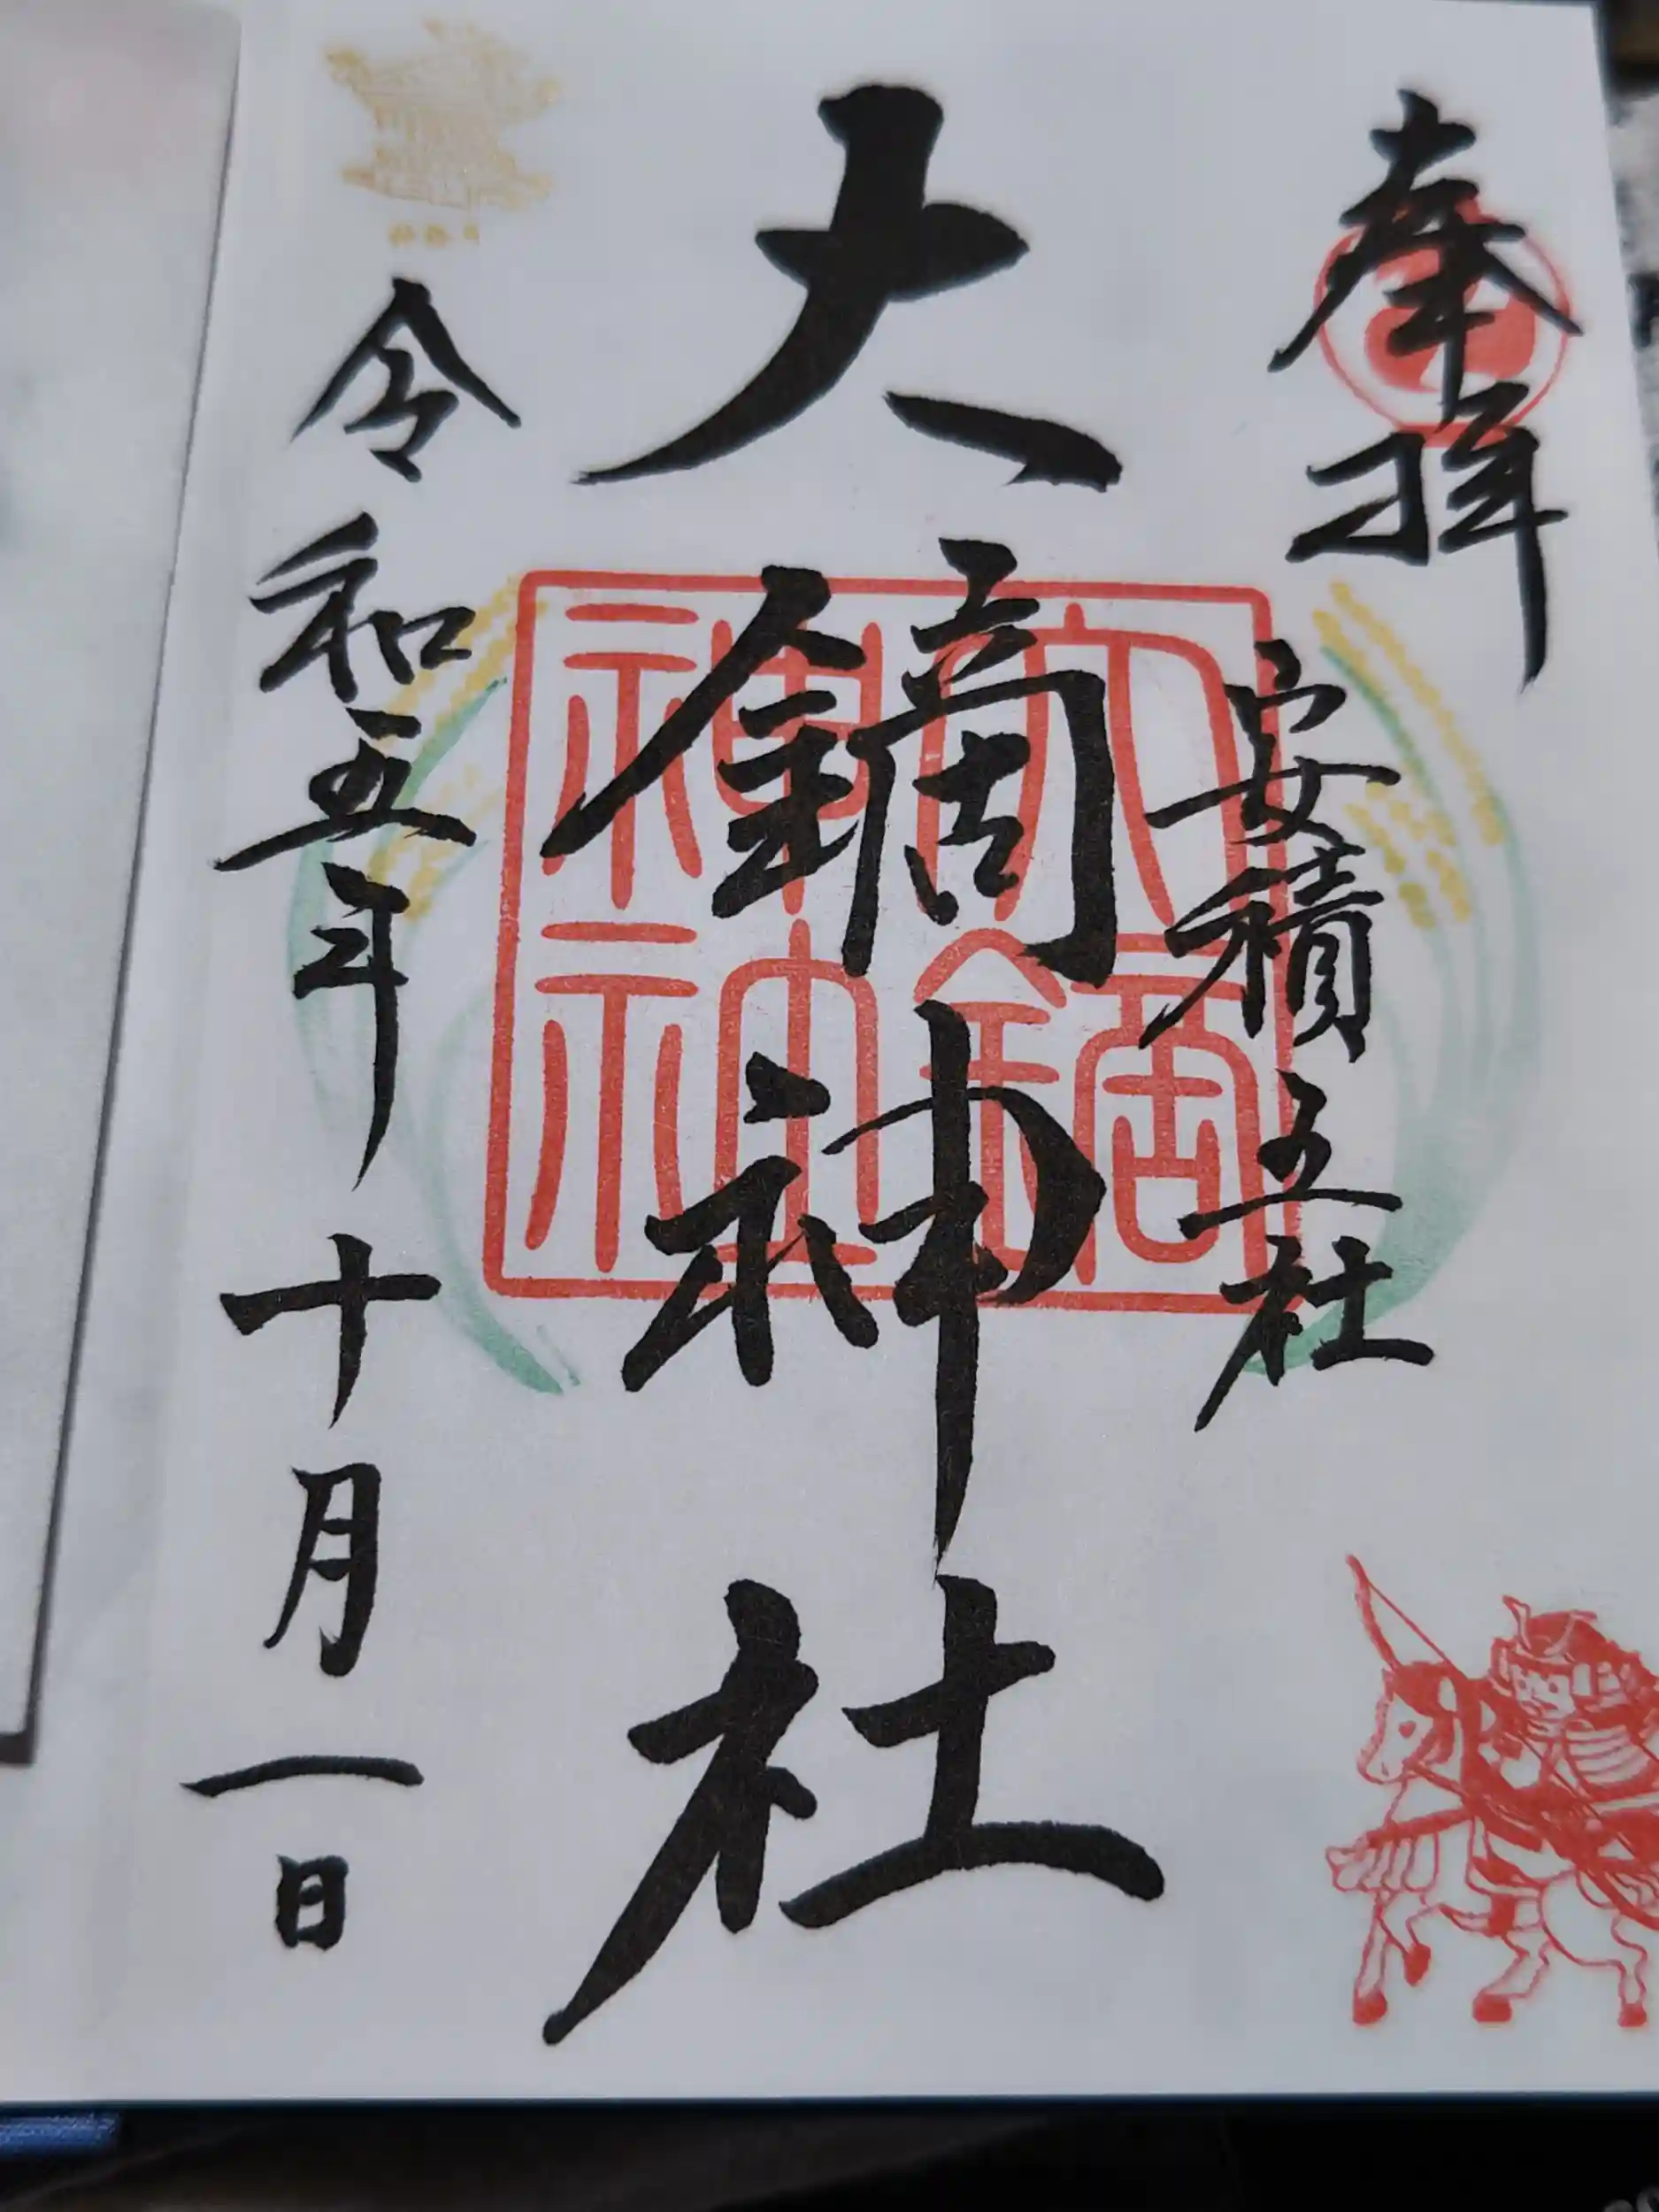 奉拝
安積五社
大鏑神社
令和五年十月一日
大鏑神社